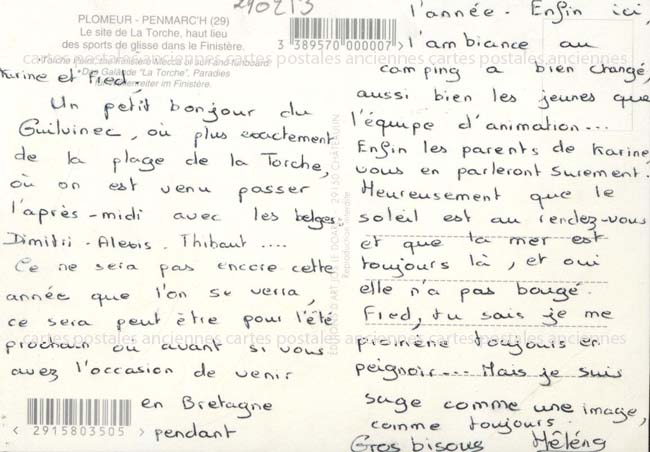 290213
PLOMEUR - PENMARC'H (29)
Le site de La Torche, haut lieu
des sports de glisse dans le Finistère.
3 389570 000007
Karine et Fred,
Un petit bonjour du
Guilvinec, où plus exactement
de la plage de la Torche,
où on est venu passer
l'après-midi avec les belges:
Dimitri - Alexis - Thibaut ....
Ce ne sera pas encore cette
année que l'on se verra,
ce sera peut être pour l'été
prochain ou avant si vous
avez l'occasion de venir
en Bretagne
pendant
< 2915803505 >
l'année. Enfin ici,
l'ambiance au
camping a bien changé,
aussi bien les jeunes que
l'équipe d'animation...
Enfin les parents de Karine
vous en parleront surement.
Heureusement que le
soleil est au rendez-vous
et que la mer est
toujours là, et oui
elle n'a pas bougé.
Fred, tu sais je me
promène toujours en
peignoir... Mais je suis
sage comme une image,
comme toujours.
Gros bisous Hélène
cartes postales anciennes cartes postales anciennes
cartes postales anciennes cartes postales anciennes